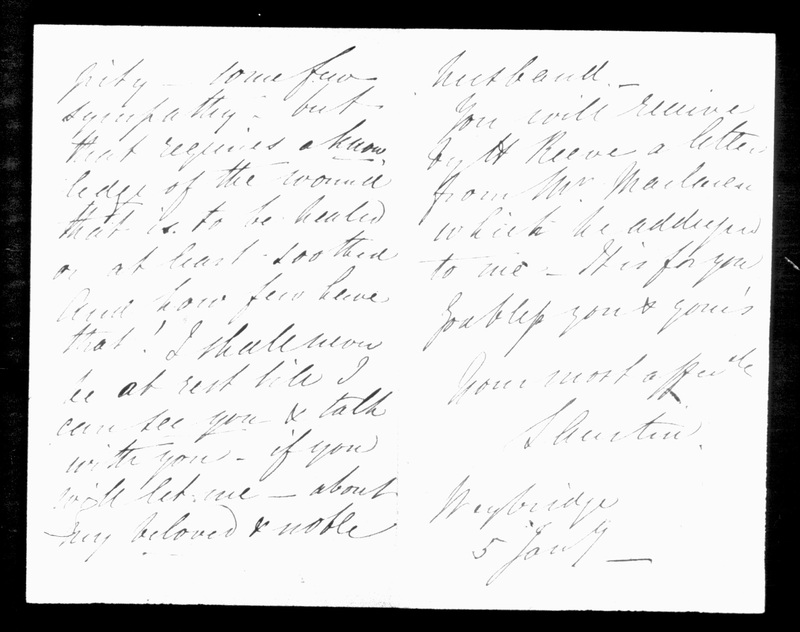 pity – some few
sympathy – but
that requires a know
ledge of the wound
that is to be healed
or at least soothed
And how few have
that! I shall never
be at rest till I
can see you & talk
with you – if you
will let me – about
my beloved & noble
husband. –
You will receive
by H Reeve a letter
from Mr.
which he addressed
to me – It is for you
God bless you & your's
Your most affecte
S Austin.
Weybridge
5 Jany –